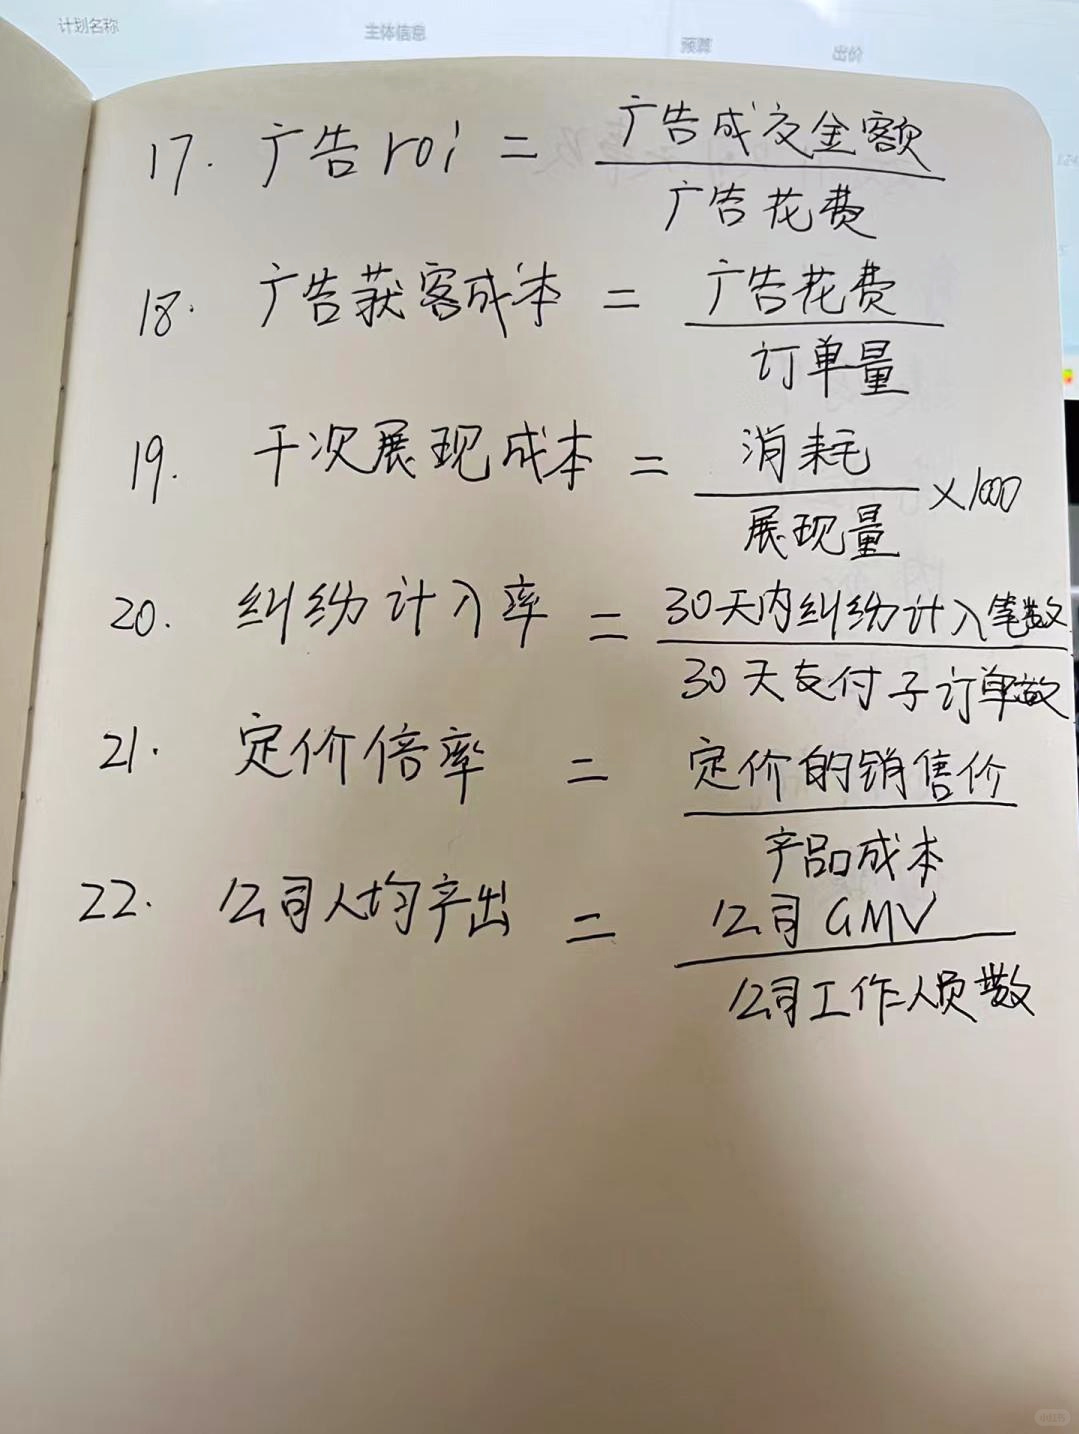 计划名称 主体信息 预算 出价
17. 广告roi = 广告成交金额
广告花费
18. 广告获客成本 = 广告花费
订单量
19. 千次展现成本 = 消耗
展现量 ×1000
20. 纠纷计入率 = 30天内纠纷计入笔数
30天支付子订单数
21. 定价倍率 = 定价的销售价
产品成本
22. 公司人均产出 = 公司GMV
公司工作人员数
小红书